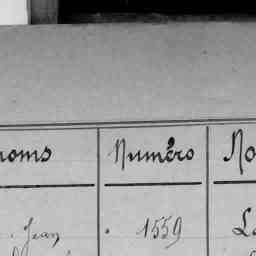 noms Numéro No
Jean 1559 L